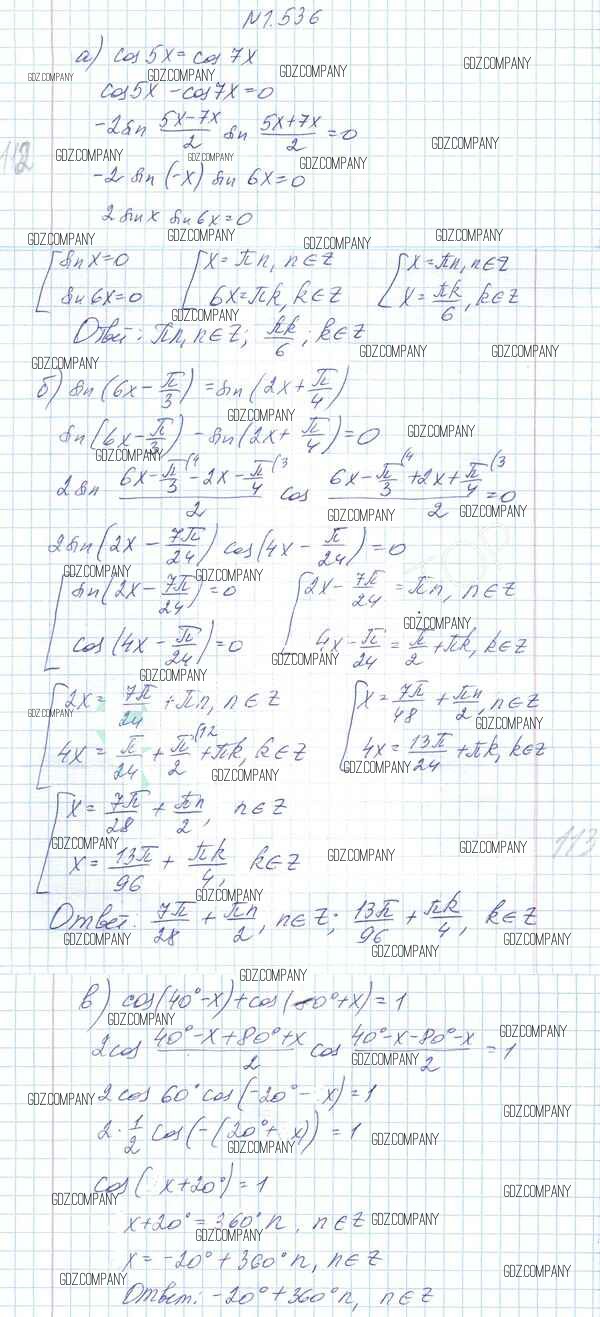 N1.536
а) cos5x = cos7x
cos5x - cos7x = 0
-2sin (5x-7x)/2 sin (5x+7x)/2 = 0
-2 sin(-x) sin 6x = 0
2 sinx sin6x = 0
[ sinx=0 [ x = πn, n∈Z [ x = πn, n∈Z
[ sin6x=0 [ 6x = πk, k∈Z [ x = πk/6, k∈Z
Ответ: πn, n∈Z; πk/6; k∈Z
б) sin(6x - π/3) = sin(2x + π/4)
sin(6x - π/3) - sin(2x + π/4) = 0
2sin (6x - π/3 (4 - 2x - π/4 (3)/2 cos (6x - π/3 (4 + 2x + π/4 (3)/2 = 0
2sin(2x - 7π/24) cos(4x - π/24) = 0
[ sin(2x - 7π/24) = 0 [ 2x - 7π/24 = πn, n∈Z
[ cos(4x - π/24) = 0 [ 4x - π/24 = π/2 + πk, k∈Z
[ 2x = 7π/24 + πn, n∈Z [ x = 7π/48 + πn/2, n∈Z
[ 4x = π/24 + π/2 (12 + πk, k∈Z [ 4x = 13π/24 + πk, k∈Z
[ x = 7π/28 + πn/2, n∈Z
[ x = 13π/96 + πk/4, k∈Z
Ответ: 7π/28 + πn/2, n∈Z; 13π/96 + πk/4, k∈Z
в) cos(40°-x) + cos(80°+x) = 1
2cos (40°-x+80°+x)/2 cos (40°-x-80°-x)/2 = 1
2cos 60° cos(-20° - x) = 1
2 · 1/2 cos(-(20° + x)) = 1
cos(x+20°) = 1
x+20° = 360°n, n∈Z
x = -20° + 360°n, n∈Z
Ответ: -20° + 360°n, n∈Z
112
113
GDZ.COMPANY